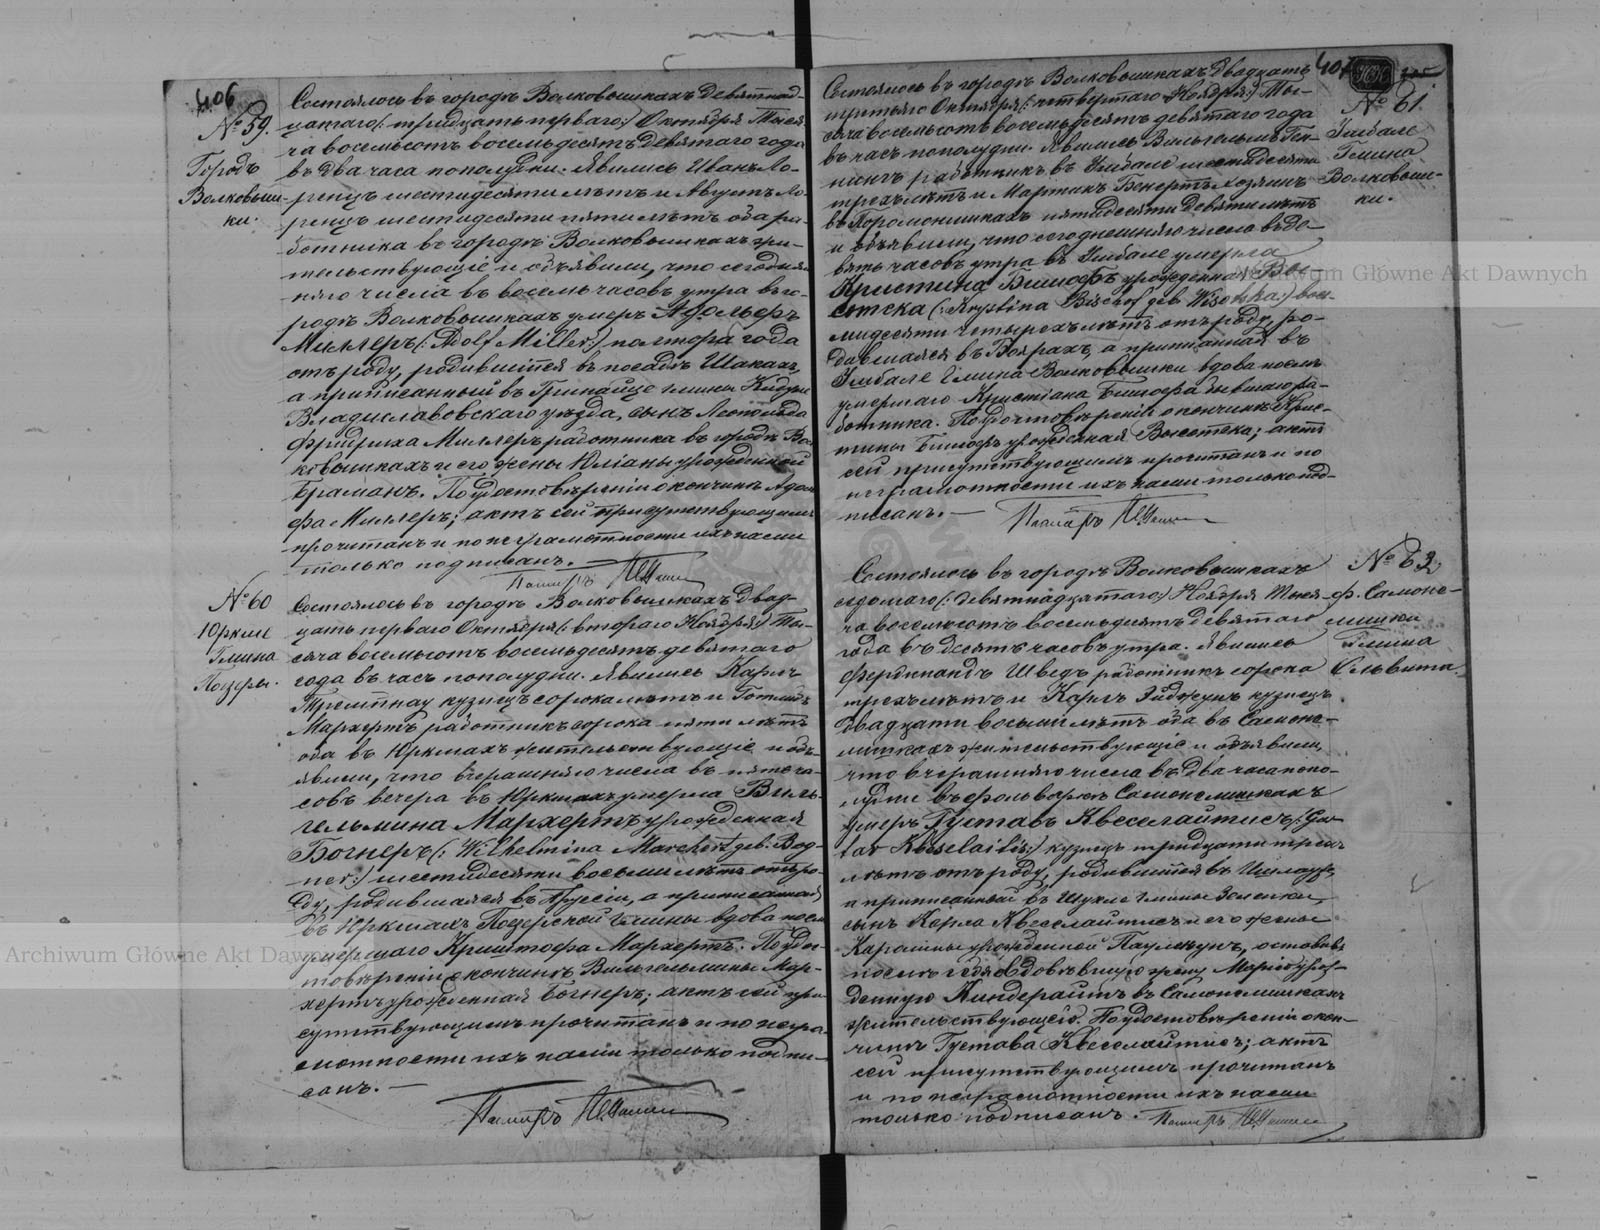 406
№ 59.
Городъ
Волковыш-
ки.
Состоялось въ городѣ Волковышкахъ девятнад-
цатаго (: тридцать перваго:) Октября Тыся-
ча восемьсотъ восемьдесятъ девятаго года
въ два часа пополудни. Явились Иванъ Ло-
ренцъ шестидесяти лѣтъ и Августъ Ло-
ренцъ шестидесяти пяти лѣтъ оба ра-
ботника въ городѣ Волковышкахъ жи-
тельствующіе и объявили, что сегодняш-
няго числа въ восемь часовъ утра въ го-
родѣ Волковышкахъ умеръ Адольфъ
Миллеръ (: Adolf Miller:) полтора года
отъ роду, родившійся въ посадѣ Шакахъ,
а приписанный въ гмины
Владиславовскаго уѣзда, сынъ Леопольда
Фридриха Миллеръ работника въ городѣ Вол-
ковышкахъ и его жены Юліаны урожденной
Браманъ. По удостовѣреніи о кончинѣ Адоль-
фа Миллеръ; актъ сей присутствующимъ
прочитанъ и по неграмотности ихъ нами
только подписанъ. —
Пасторъ
№ 60
Юркше
Гмина
Поезеры.
Состоялось въ городѣ Волковышкахъ двад-
цать перваго Октября (: втораго Ноября:) Ты-
сяча восемьсотъ восемьдесятъ девятаго
года въ часъ пополудни. Явились Карлъ
Тремпнау кузнецъ сорока лѣтъ и Готлибъ
Мархертъ работникъ сорока пяти лѣтъ
оба въ Юркшахъ жительствующіе и объ-
явили, что вчерашняго числа въ пять ча-
совъ вечера въ Юркшахъ умерла Виль-
гельмина Мархертъ урожденная
Богнеръ (: Wilhelmina Marchert geb. Bog-
ner:) шестидесяти восьми лѣтъ отъ ро-
ду, родившаяся въ Пруссіи, а приписанная
въ Юркшахъ Поезерской гмины вдова послѣ
умершаго Криштофа Мархертъ. По удос-
товѣреніи о кончинѣ Вильгельмины Мар-
хертъ урожденная Богнеръ; актъ сей при-
сутствующимъ прочитанъ и по негра-
мотности ихъ нами только подпи-
санъ. —
Пасторъ
407
№ 61.
Умбале
Гмина
Волковыш-
ки.
Состоялось въ городѣ Волковышкахъ двадцать
третьяго Октября (: четвертаго Ноября:) Ты-
сяча восемьсотъ восемьдесятъ девятаго года
въ часъ пополудни. Явились Вильгельмъ Ген-
нигъ работникъ въ Умбале шестидесяти
трехъ лѣтъ и Мартинъ Бекертъ хозяинъ
въ пятидесяти девяти лѣтъ
и объявили, что сегодняшняго числа въ де-
вять часовъ утра въ Умбале умерла
Кристина Бишофъ урожденная Вы-
сотска (: Krystina Bischof geb Wisotska:) вось-
мидесяти четырехъ лѣтъ отъ роду, ро-
дившаяся въ Боярахъ, а приписанная въ
Умбале Гмина Волковышки вдова послѣ
умершаго Кристіана Бишофа бывшаго ра-
ботника. По удостовѣреніи о кончинѣ Крис-
тины Бишофъ урожденная Высотска; актъ
сей присутствующимъ прочитанъ и по
неграмотности ихъ нами только под-
писанъ. —
Пасторъ
№ 62
ф. Самоне-
лишки
Гмина
Кальвита.
Состоялось въ городѣ Волковышкахъ
седьмаго (: девятнадцатаго:) Ноября Тыся-
ча восемьсотъ восемьдесятъ девятаго
года въ десять часовъ утра. Явились
Фердинандъ Шведъ работникъ сорока
трехъ лѣтъ и Карлъ кузнецъ
двадцати восьми лѣтъ оба въ Самоне-
лишкахъ жительствующіе и объявили,
что вчерашняго числа въ два часа попо-
лудни въ фольваркѣ Самонелишкахъ
умеръ Густавъ Квеселайтисъ (: Gus-
tav Kweselaitis:) кузнецъ тридцати трехъ
лѣтъ отъ роду, родившійся въ
а приписанный въ Шукле гмины Зеленки,
сынъ Карла Квеселайтисъ и его жены
Каролины урожденной Паулькунъ, оставивъ
послѣ себя овдовѣвшую жену Марію урож-
денную Киндерайтъ въ Самонелишкахъ
жительствующей. По удостовѣреніи о кон-
чинѣ Густава Квеселайтисъ; актъ
сей присутствующимъ прочитанъ
и по неграмотности ихъ нами
только подписанъ.
Пасторъ
Archiwum Główne Akt Dawnych
Archiwum Główne Akt Dawnych